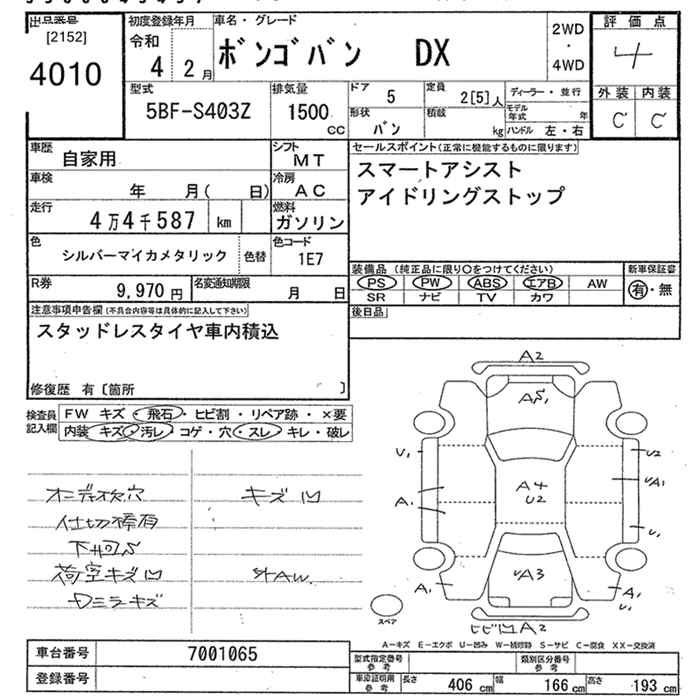 出品番号 初度登録年月 車名・グレード 2WD ・ 4WD 評価点
[2152]
4010
令和 4 2月 ボンゴバン DX 4
外装 内装
C C
型式 排気量 ドア 5 定員 2[5]人 ディーラー・並行
5BF-S403Z 1500 cc 形状 バン 積載 kg モデル年式 年
ハンドル 左・右
車歴 自家用 シフト MT セールスポイント(正常に機能するものに限ります)
車検 年 月( 日) 冷房 AC スマートアシスト
走行 4万4千587 km 燃料 ガソリン アイドリングストップ
色 シルバーマイカメタリック 色替 色コード 1E7
装備品 (純正品に限り○をつけてください) 新車保証書
R券 9,970円 名変通知期限 月 日 PS PW ABS エアB AW 有・無
SR ナビ TV カワ
注意事項申告欄(不具合内容等は具体的に記入して下さい) 後日品
スタッドレスタイヤ車内積込
修復歴 有〔箇所 〕
検査員記入欄 FW キズ・飛石・ヒビ割・リペア跡・×要
内装 キズ・汚レ・コゲ・穴・スレ・キレ・破レ
A2
A5
U1 U2
A4 UA1
U2
A1 U1
UA3
A1 A1
ヒビ凹 A2
オーディオ欠穴 キズ凹
仕切棒有
下凹S
荷室キズ凹 外AW.
Dミラーキズ
スペア
A-キズ E-エクボ U-凹み W-補修跡 S-サビ C-腐食 XX-交換済
車台番号 7001065 型式指定番号 参考 類別区分番号 参考
登録番号 車庫証明用 参考 長さ 406cm 幅 166cm 高さ 193cm